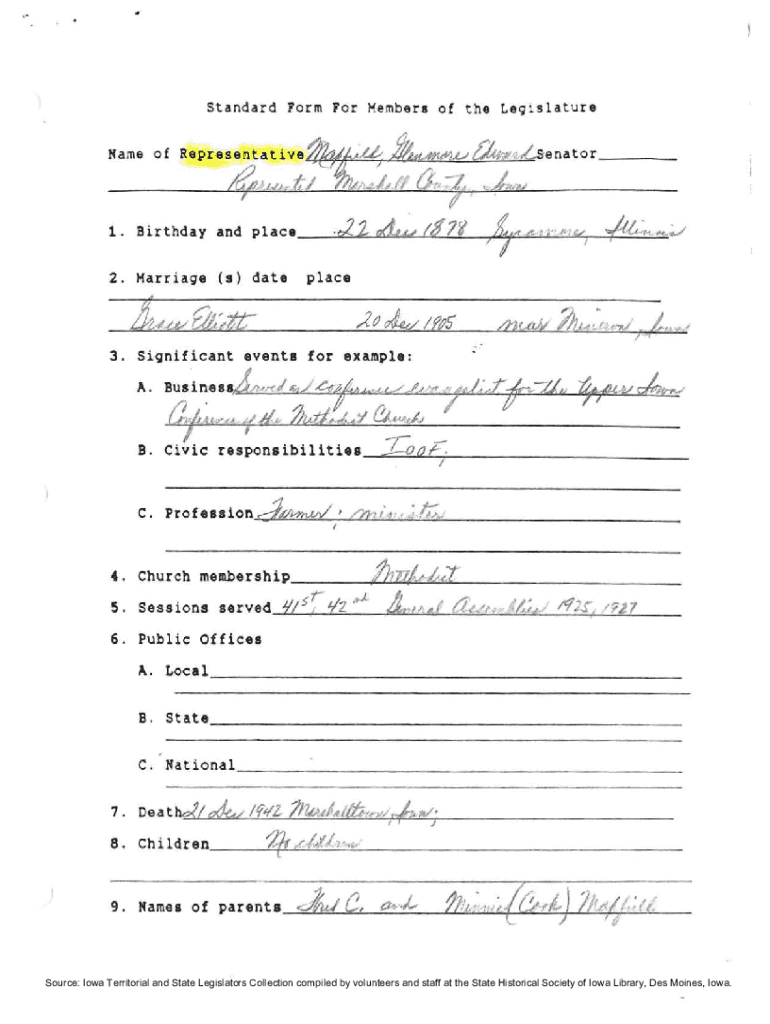 Standard Form For Members of the Legislature
Name of Representative Maffield, Glenmore Edward Senator
Represented Marshall County, Iowa
1. Birthday and place 22 Dec 1878 Sycamore, Illinois
2. Marriage (s) date place
Grace Elliott 20 Dec 1905 near Minerva, Iowa
3. Significant events for example:
A. Business Served as conference evangelist for the Upper Iowa
Conference of the Methodist Church
B. Civic responsibilities IOOF;
C. Profession Farmer; minister
4. Church membership Methodist
5. Sessions served 41st, 42nd General Assemblies 1925, 1927
6. Public Offices
A. Local
B. State
C. National
7. Death 21 Dec 1942 Marshalltown, Iowa;
8. Children No children
9. Names of parents Fred C. and Minnie (Cook) Maffield
Source: Iowa Territorial and State Legislators Collection compiled by volunteers and staff at the State Historical Society of Iowa Library, Des Moines, Iowa.